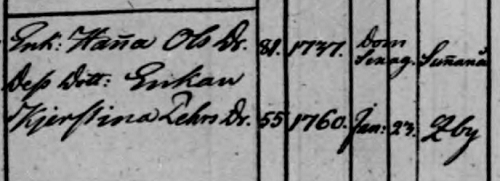 Enk: Haña Ols Dr. 81. 1737. Dom Sexag. Suñanå
Deß Dott: Enkan
Kjerstina Pehrs Dr. 55 1760. Jan: 23. Qby